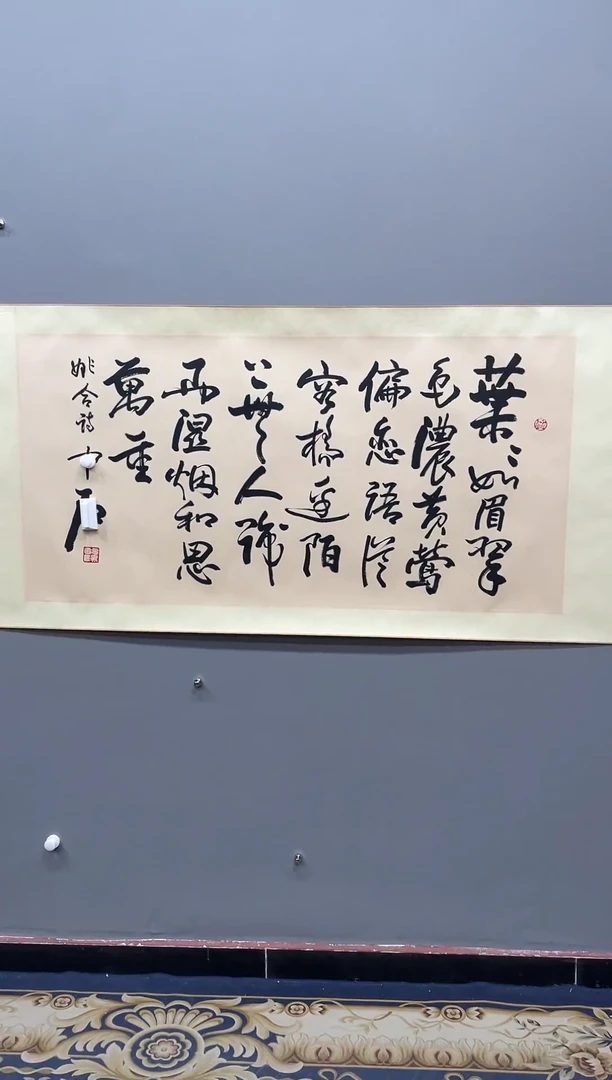 葉〻如眉翠
色濃黄鶯
偏恋語從
容橋邊陌
上無人識
雨湿烟和思
萬重
姚合詩 中石